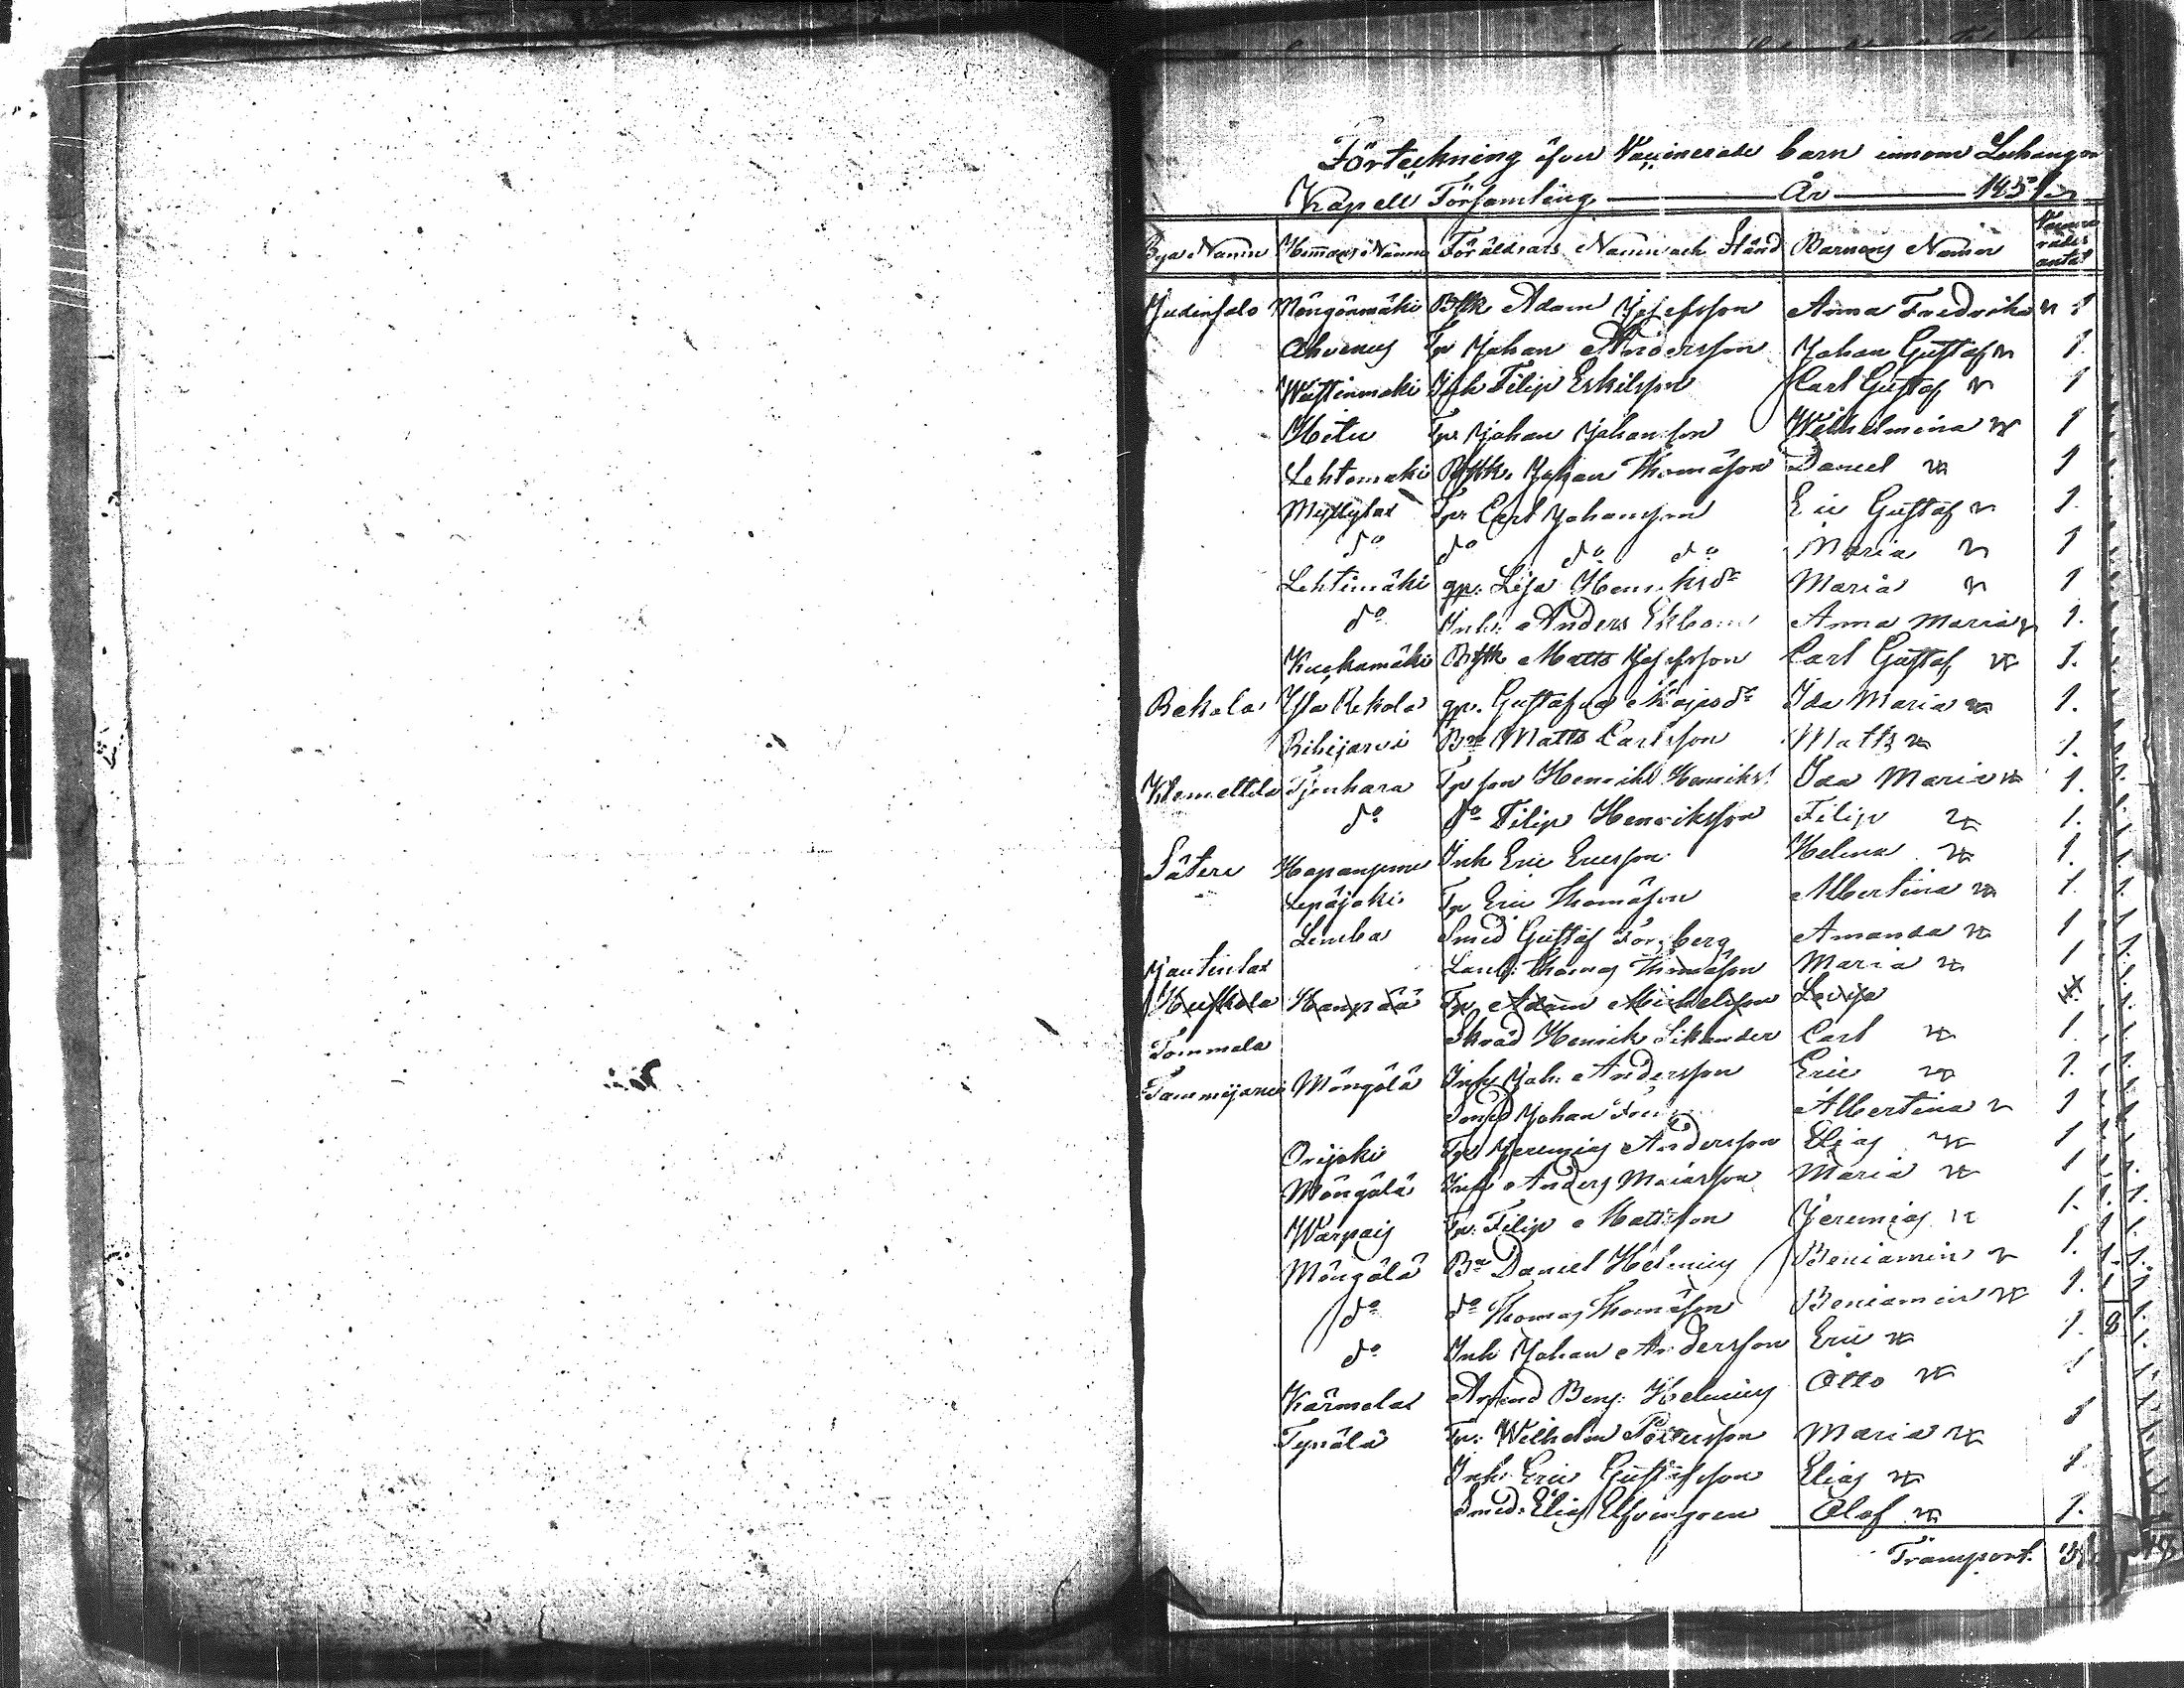 Förteckning öfver Vaccinerade barn innom Luhango
Kapell Församling År 1857
Bya Namn Hemmans Namn Föräldrars Namn och Stånd Barnens Namn Vaccinerades antal
Judinsalo Möngönmäki Btsk Adam Josefsson Anna Fredrika 1
Ahvenus Tp Johan Andersson Johan Gustaf 1.
Inh Filip Eskilsson Carl Gustaf 1
Hietu Tpr Johan Johansson Wilhelmina 1
Lehtomäki Btsk. Johan Thomasson Daniel 1
Myllylax Tpr Carl Johansson Eric Gustaf 1.
do do do do Maria 1
Lehtimäki qp: Lisa Henriksdr Maria 1
do Inh: Anders Ekbom Anna Maria 1.
Btsk Matts Josefsson Carl Gustaf 1.
Rekola Yla Rekola qp. Gustafva Majasdr Ida Maria 1.
Rihijärvi Bn Matts Carlsson Matts 1.
Klemettilä Tjenhara Tp son Henrik Henrikss. Ida Maria 1.
do do Filip Henriksson Filip 1.
Säteri Inh Eric Ericsson Helena 1.
Lepäjoki Tp Eric Thomasson Albertina 1.
Lemba Smid Gustaf Forsberg Amanda 1
Thomas Thomasson Maria 1
Tp Adam Michelsson Lovisa
Tommola Skräd Henrik Sikander Carl 1.
Tammijärvi Möngölä Inh Joh: Andersson Eric 1.
Smid Johan Albertina 1
Orijoki Tp Jeremias Andersson Elias 1
Möngölä Inh Anders Maiasson Maria 1
Warpais Tp: Filip Mattsson Jeremias 1.
Möngölä Bn Daniel Helenius Beniamin 1.
do do Thomas Thomasson Beniamin 1.
do Inh Johan Andersson Eric 1.
Kärmelax Benj: Helenius Otto 1
Tynälä Tp: Wilhelm Pettersson Maria 1
Inh Eric Gustafsson Elias 1
Smid: Elias Elfvengren Olof 1.
Transport. 31